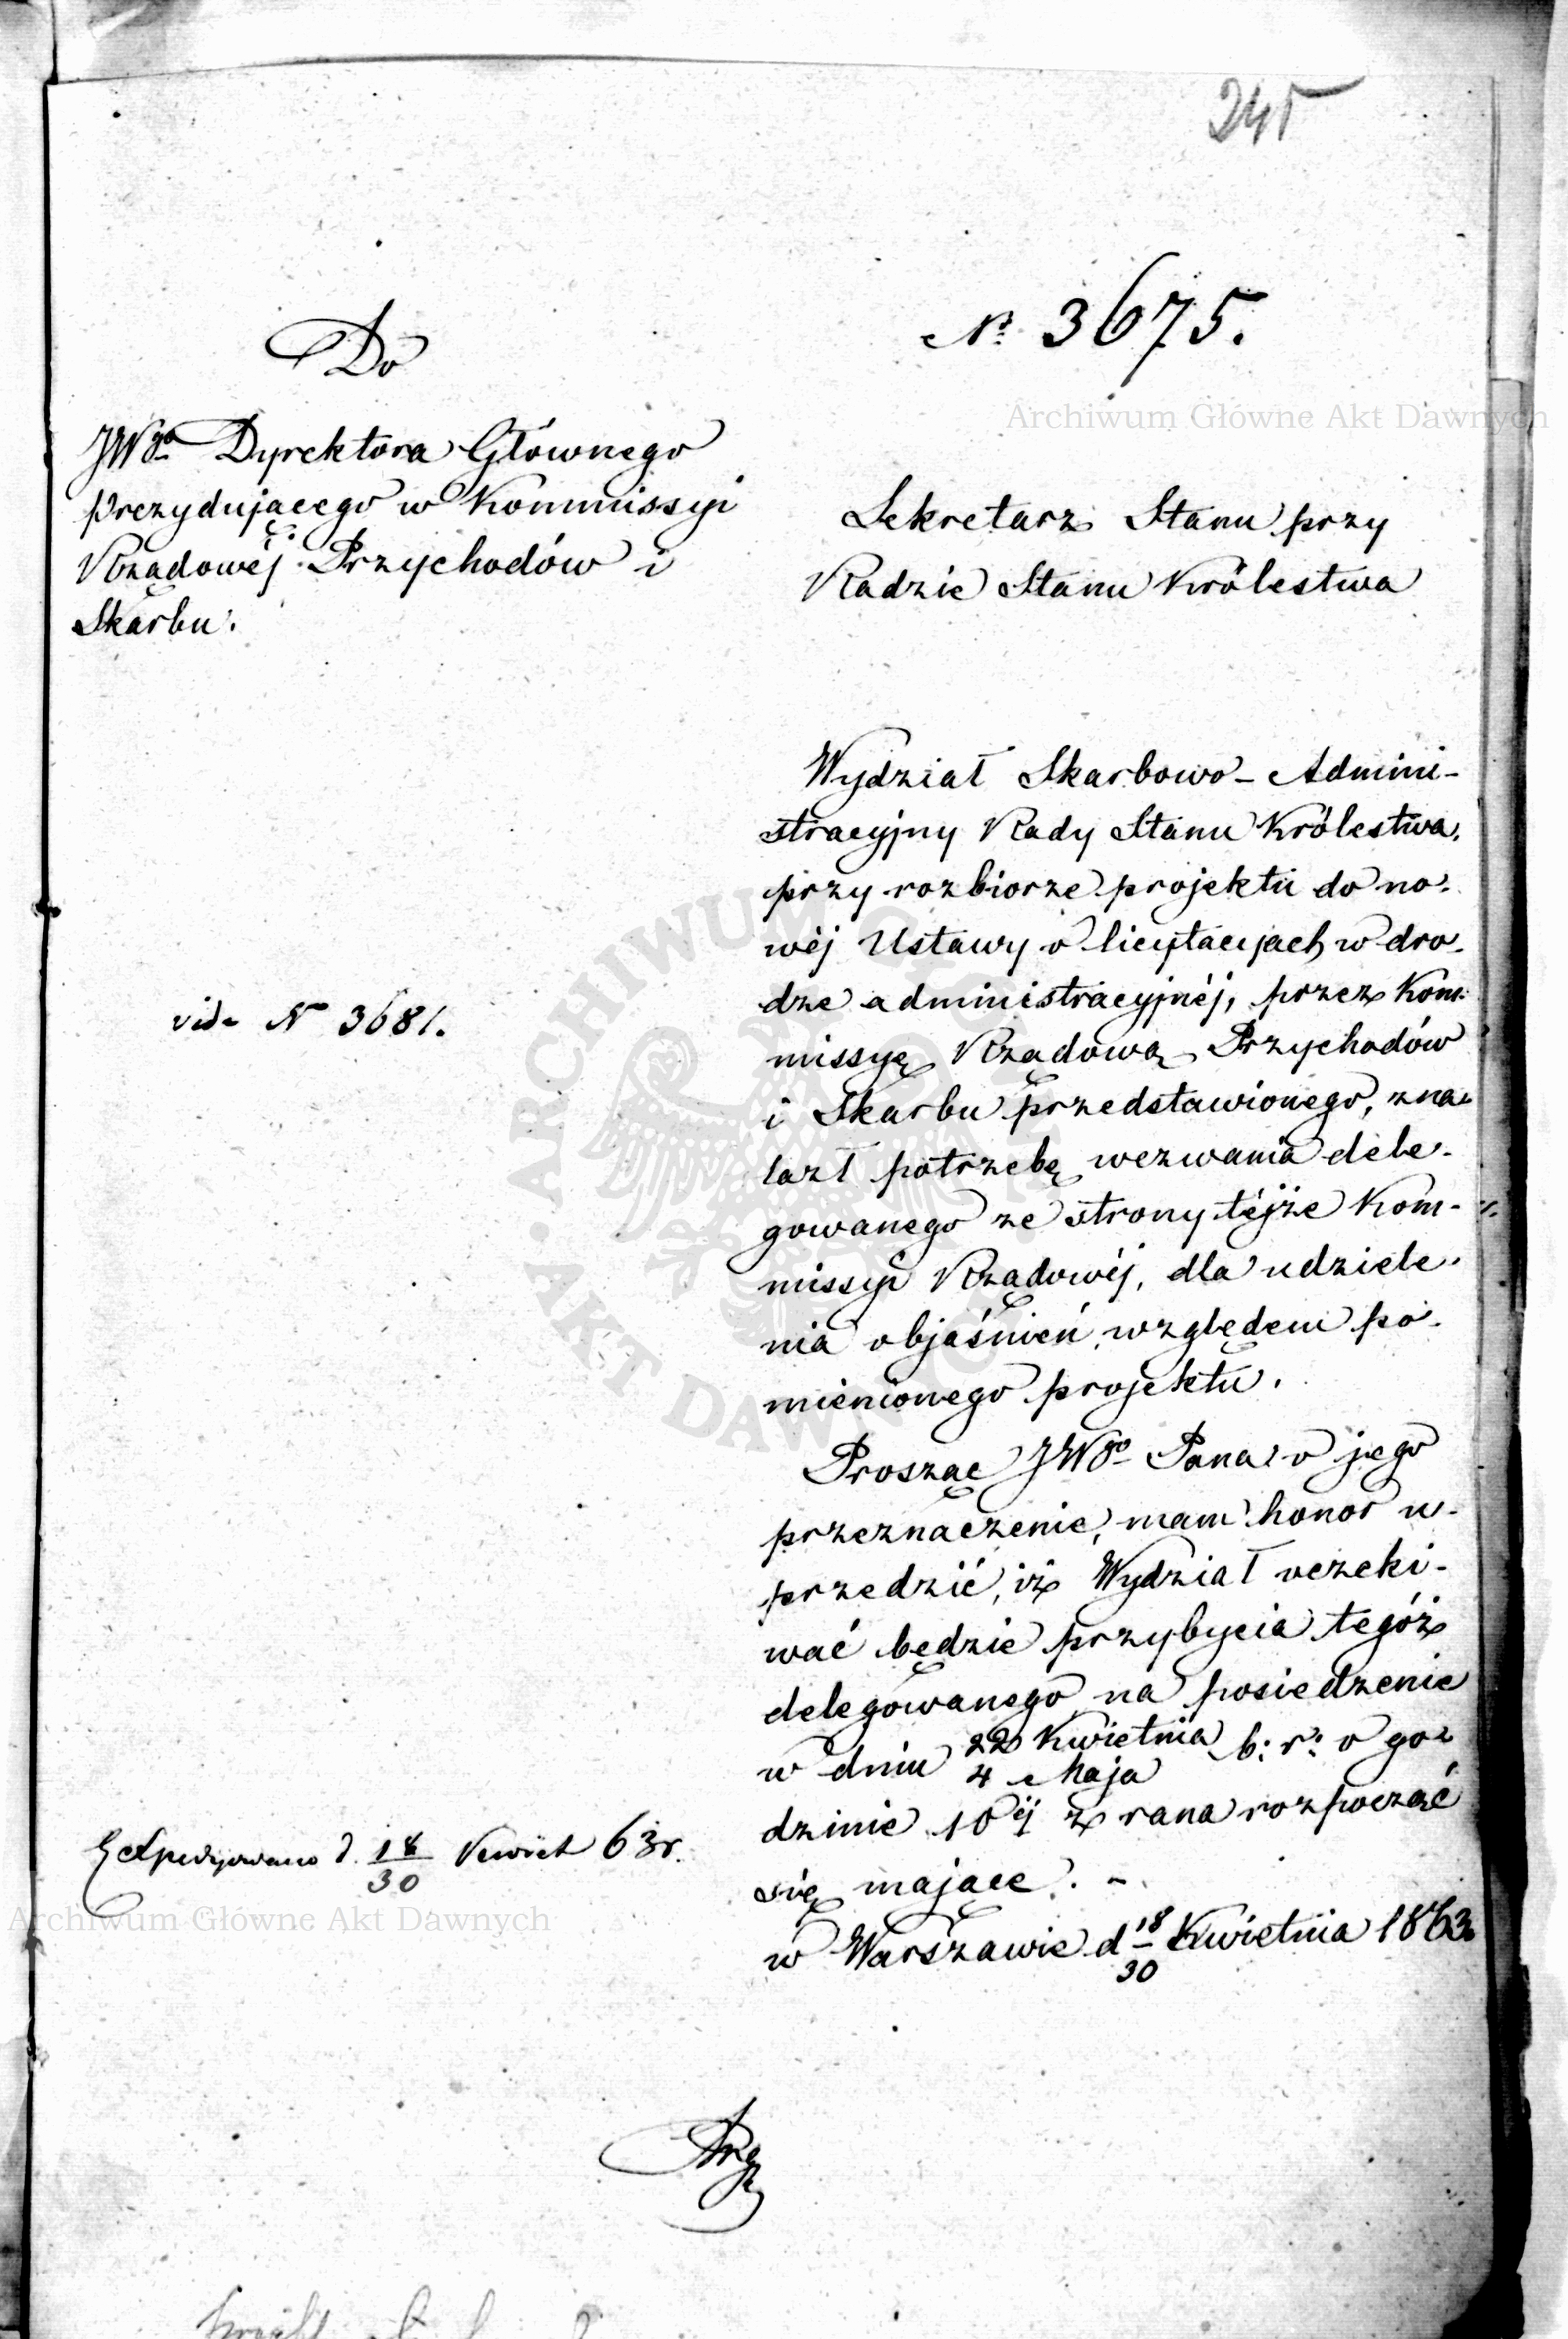 245
Do
JWgo Dyrektora Głównego
prezydującego w Kommissyi
Rządowéj Przychodów i
Skarbu.
№ 3675.
Archiwum Główne Akt Dawnych
Sekretarz Stanu przy
Radzie Stanu Królestwa
Wydział Skarbowo-Admini-
stracyjny Rady Stanu Królestwa,
przy rozbiorze projektu do no-
wéj Ustawy o licytacyjach w dro-
dze administracyjnéj, przez Kom-
missyę Rządową Przychodów
i Skarbu przedstawionego, zna-
lazł potrzebę wezwania dele-
gowanego ze strony téjże Kom-
missyi Rządowéj, dla udziele-
nia objaśnień względem po-
mienionego projektu.
Prosząc JWgo Pana o jego
przeznaczenie, mam honor u-
przedzić, iż Wydział oczeki-
wać będzie przybycia tegóż
delegowanego na posiedzenie
w dniu 22 Kwietnia / 4 Maja b: r: o go-
dzinie 10éj z rana rozpocząć
się mające. -
w Warszawie d 18/30 Kwietnia 1863
vide N 3681.
Expedyowano d. 18/30 Kwiet 63 r.
Archiwum Główne Akt Dawnych
ARCHIWUM GŁÓWNE AKT DAWNYCH